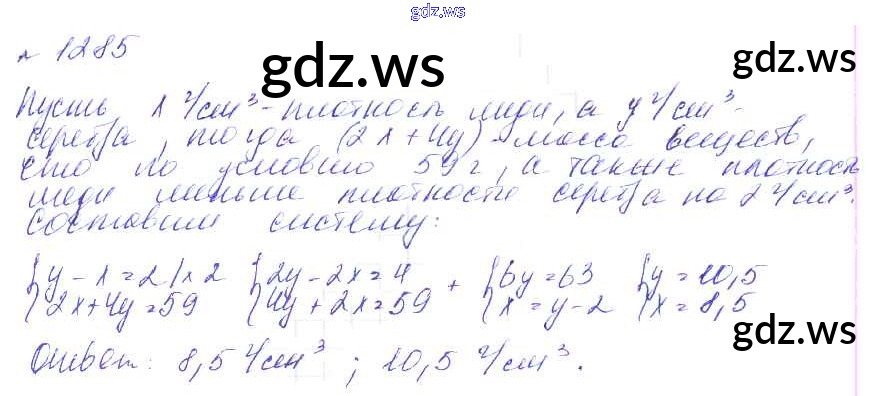 gdz.ws
№ 1285
gdz.ws
gdz.ws
Пусть x г/см³ - плотность меди, а y г/см³ -
серебра, тогда (2x + 4y) - масса веществ,
что по условию 59 г, а также плотность
меди меньше плотности серебра на 2 г/см³.
Составим систему:
{y - x = 2 | x 2 {2y - 2x = 4 + {6y = 63 {y = 10,5
{2x + 4y = 59 {4y + 2x = 59 {x = y - 2 {x = 8,5
gdz.ws
Ответ: 8,5 г/см³ ; 10,5 г/см³.